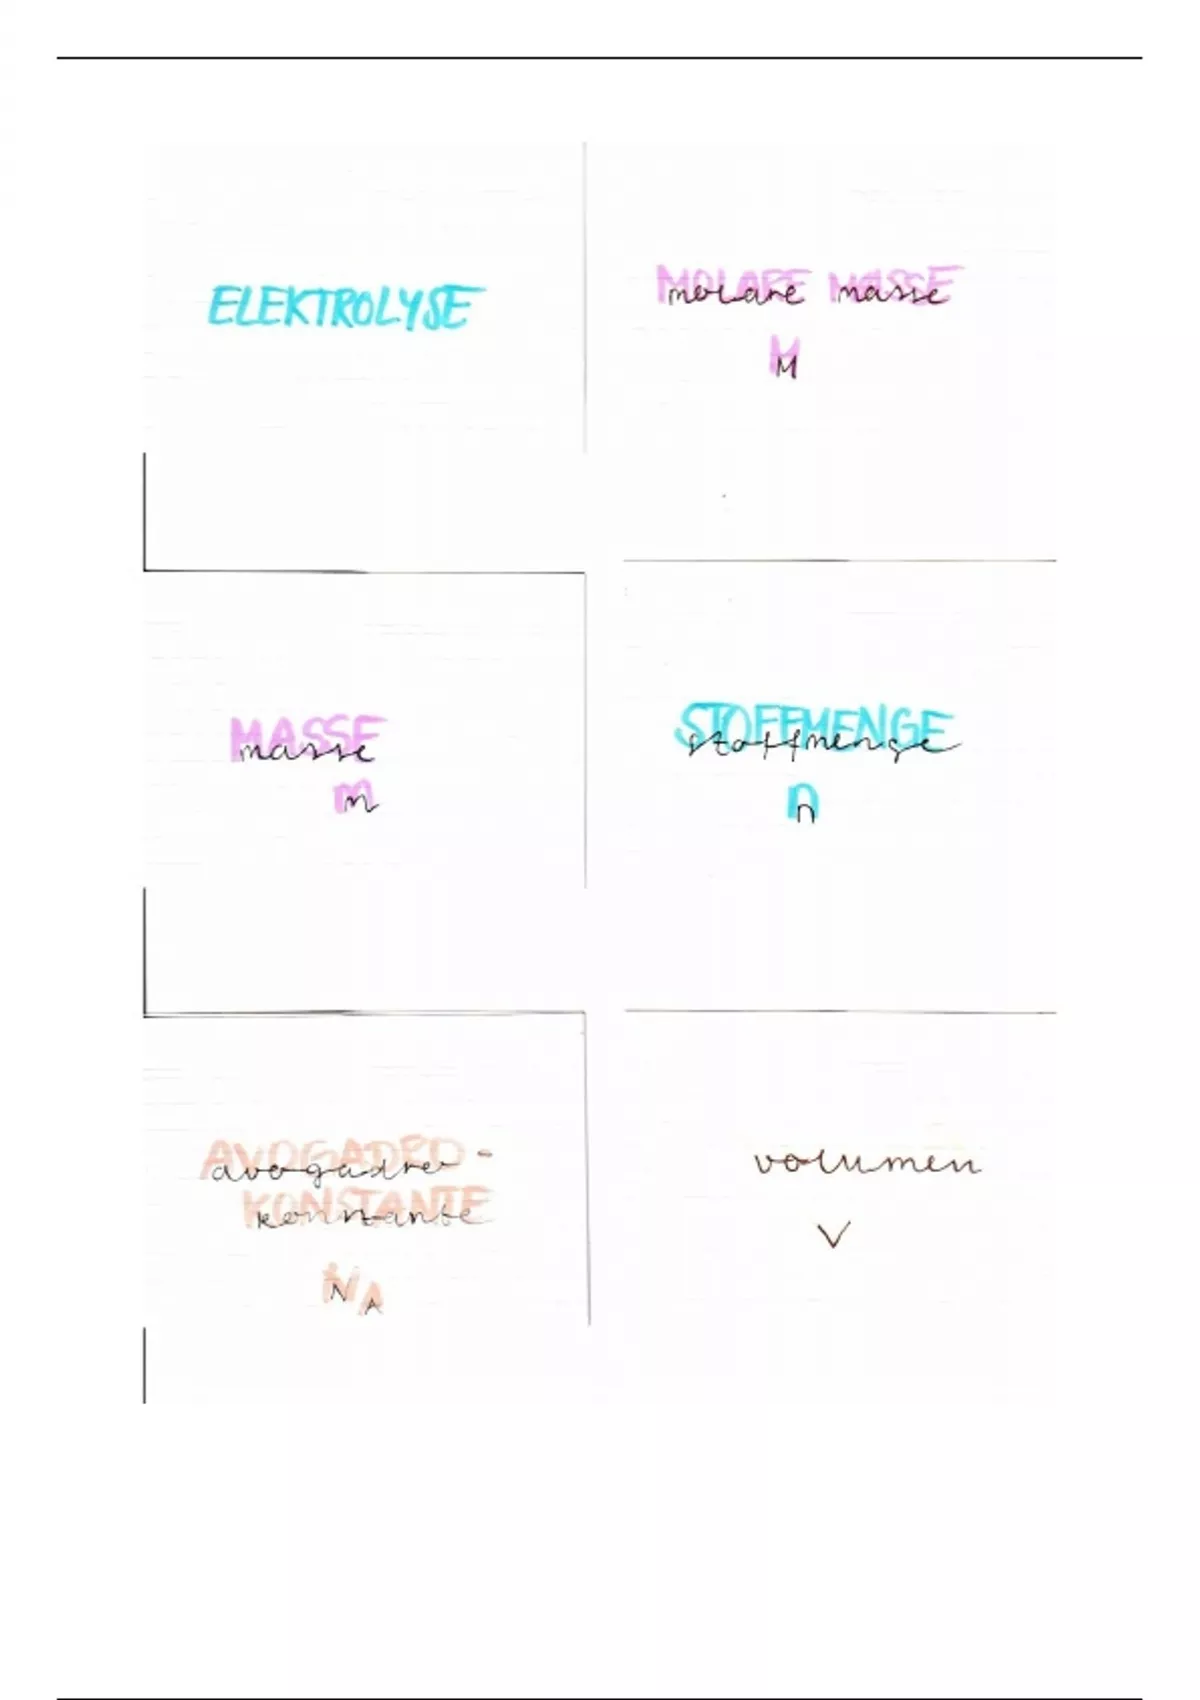 ELEKTROLYSE
MOLARE MASSE
molare masse
M
M
MASSE
masse
m
m
STOFFMENGE
stoffmenge
n
n
AVOGADRO-
avogadro
KONSTANTE
konstante
NA
NA
volumen
V